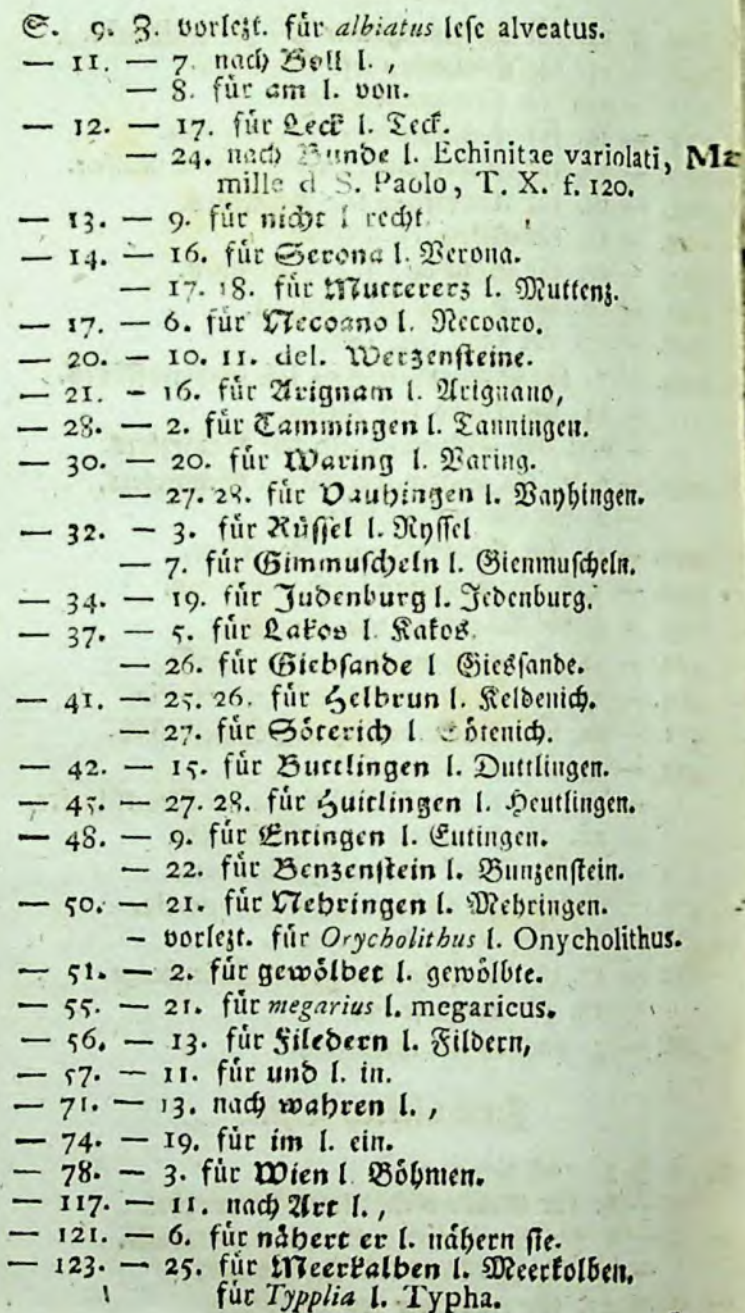 S. 9. Z. vorlezt. für albiatus lese alveatus.
— 11. — 7. nach Boll l. ,
— 8. für am l. von.
— 12. — 17. für Leck l. Teck.
— 24. nach Bunde l. Echinitae variolati, Ma
mille d S. Paolo, T. X. f. 120.
— 13. — 9. für nicht l recht
— 14. — 16. für Serona l. Verona.
— 17. 18. für Mutterers l. Muttenz.
— 17. — 6. für Necoano l. Recoaro.
— 20. — 10. 11. del. Werzensteine.
— 21. - 16. für Arignam l. Arignano,
— 28. — 2. für Tammingen l. Tanningen.
— 30. — 20. für Waring l. Varing.
— 27. 28. für Vaubingen l. Vayhingen.
— 32. — 3. für Rüssel l. Ryssel
— 7. für Gimmuscheln l. Gienmuscheln.
— 34. — 19. für Judenburg l. Jedenburg.
— 37. — 5. für Lakos l. Kakos.
— 26. für Giebsande l Giessande.
— 41. — 25. 26. für Helbrun l. Keldenich.
— 27. für Söterich l ötenich.
— 42. — 15. für Buttlingen l. Duttlingen.
— 45. — 27. 28. für Huitlingen l. Heutlingen.
— 48. — 9. für Entingen l. Eutingen.
— 22. für Benzenstein l. Bunzenstein.
— 50. — 21. für Nebringen l. Mehringen.
- vorlezt. für Orycholithus l. Onycholithus.
— 51. — 2. für gewölbet l. gewölbte.
— 55. — 21. für megarius l. megaricus.
— 56. — 13. für Filedern l. Fildern,
— 57. — 11. für und l. in.
— 71. — 13. nach wahren l. ,
— 74. — 19. für im l. ein.
— 78. — 3. für Wien l Böhmen.
— 117. — 11. nach Art l. ,
— 121. — 6. für nähert er l. nähern sie.
— 123. — 25. für Meerkalben l. Meerkolben,
für Typplia l. Typha.